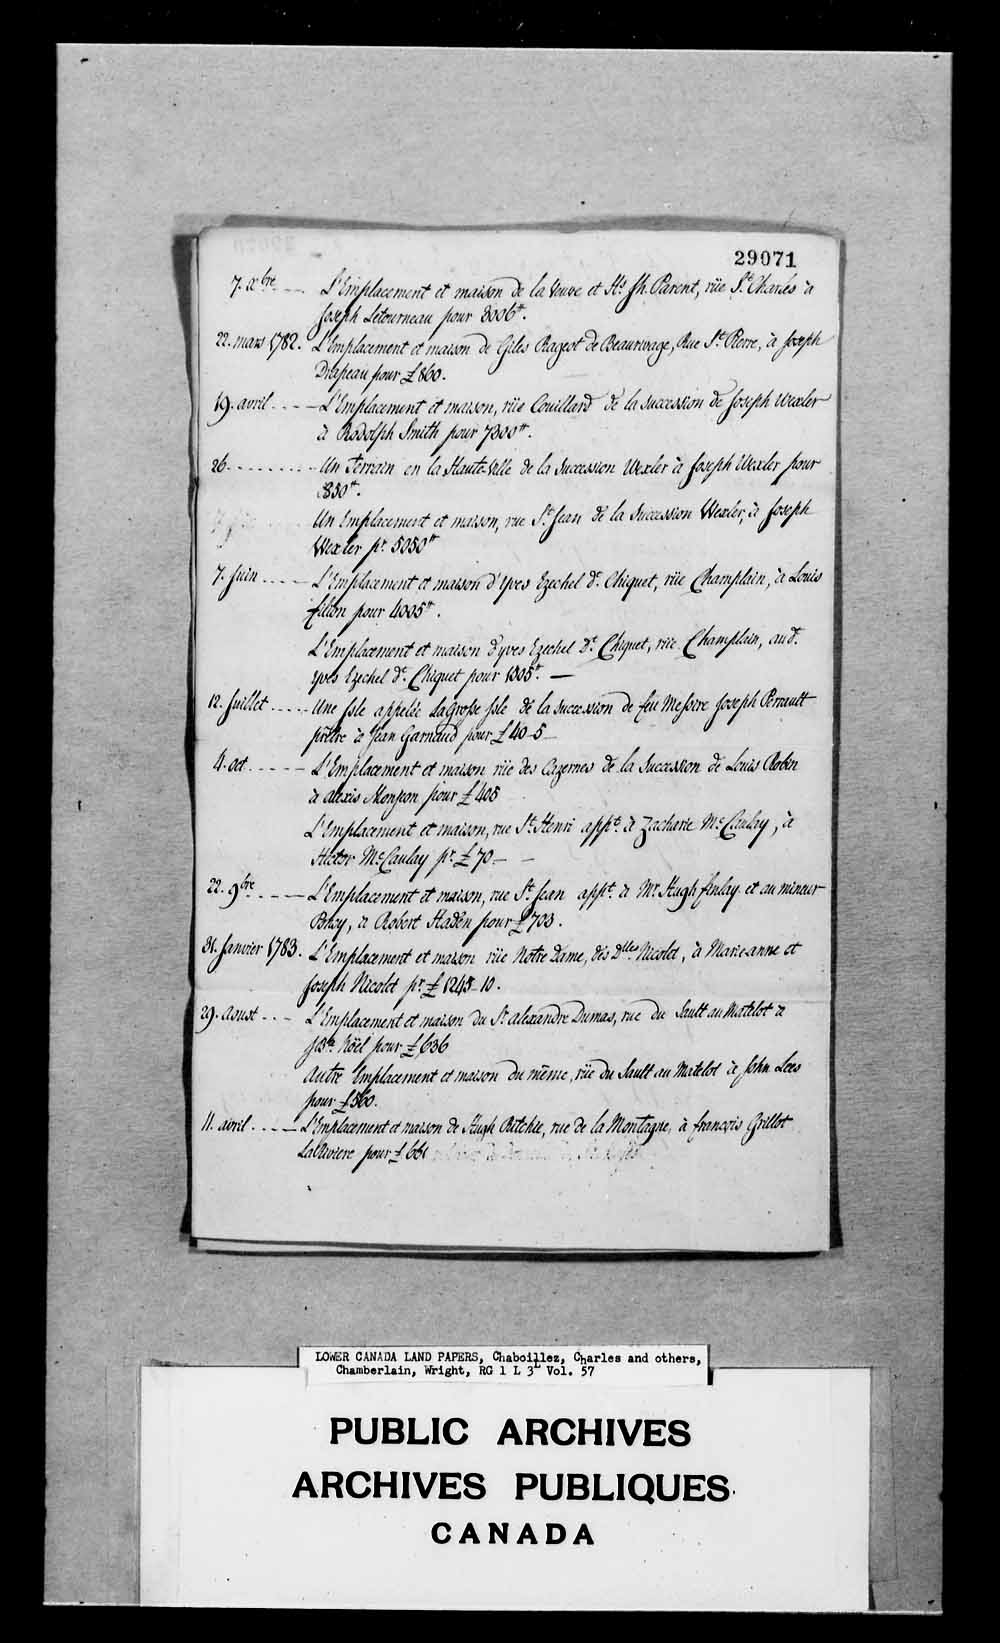 29071
7. xbre - - . L'Emplacement et maison de la Veuve et Hrs Jh. Parent, rüe St. Charles à
Joseph Letourneau pour 3006tt.
22. mars 1782. L'Emplacement et maison de Giles Rageot de Beaurivage, Rue St. Pierre, à Joseph
Drapeau pour £860.
19. avril . . - - L'Emplacement et maison, rüe Couillard de la succession de Joseph Wexler
à Rodolph Smith pour 7300tt.
26 - - - - - - - - Un terrain en la Haute-Ville de la Succession Wexler à Joseph Wexler pour
830tt.
Un Emplacement et maison, rue St. Jean de la Succession Wexler, à Joseph
Wexler pr. 5050tt
7. Juin - - - - L'Emplacement et maison d'Yves Ezechel dt. Chiquet, rüe Champlain, à Louis
filion pour 4005tt.
L'Emplacement et maison d'yves Ezechel dt. Chiquet, rüe Champlain, au d.
yves Ezechel dt. Chiquet pour 1305tt. —
12. Juillet - - - - Une Isle appelée La Grosse Isle de la succession de feu Messire Joseph Perrault
prêtre à Jean Garnaud pour £40-5-
4. oct. - - - - L'Emplacement et maison rüe des Cazernes de la Succession de Louis Robin
à alexis Monjeon pour £405
L'Emplacement et maison, rue St. Henri appt. à Zacharie McCaulay, à
Hector McCaulay pr. £70 - -
22. 9bre. - - - L'Emplacement et maison, rue St. Jean appt. à Mr. Hugh finlay et au mineur
à Robert Haden pour £703.
31. Janvier 1783. L'Emplacement et maison rüe Notre Dame, des Dlles Nicolet, à Marie-anne et
Joseph Nicolet pr. £1245-10.
29. Aoust - - - L'Emplacement et maison du Sr. alexandre Dumas, rue du Sault au Matelot à
Jbte. Noël pour £636
Autre Emplacement et maison du même, rüe du Sault au Matelot à John Lees
pour £560.
11. avril . - - - L'Emplacement et maison de Hugh Ritchie, rue de la Montagne, à françois Grillot
LaRiviere pour £661
LOWER CANADA LAND PAPERS, Chaboillez, Charles and others,
Chamberlain, Wright, RG 1 L 3L Vol. 57
PUBLIC ARCHIVES
ARCHIVES PUBLIQUES
CANADA